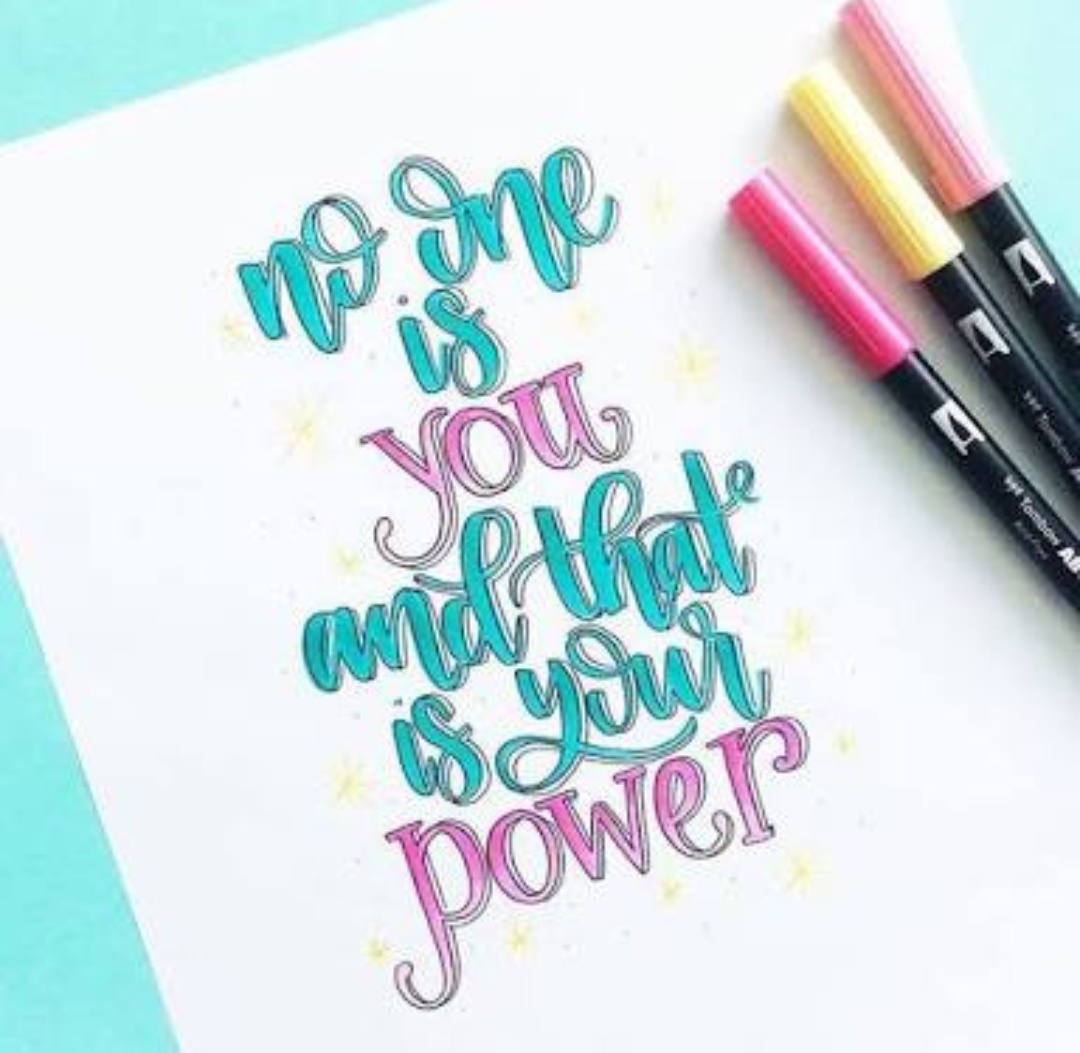 no one
is
you
and that
is your
power
Tombow
Tombow